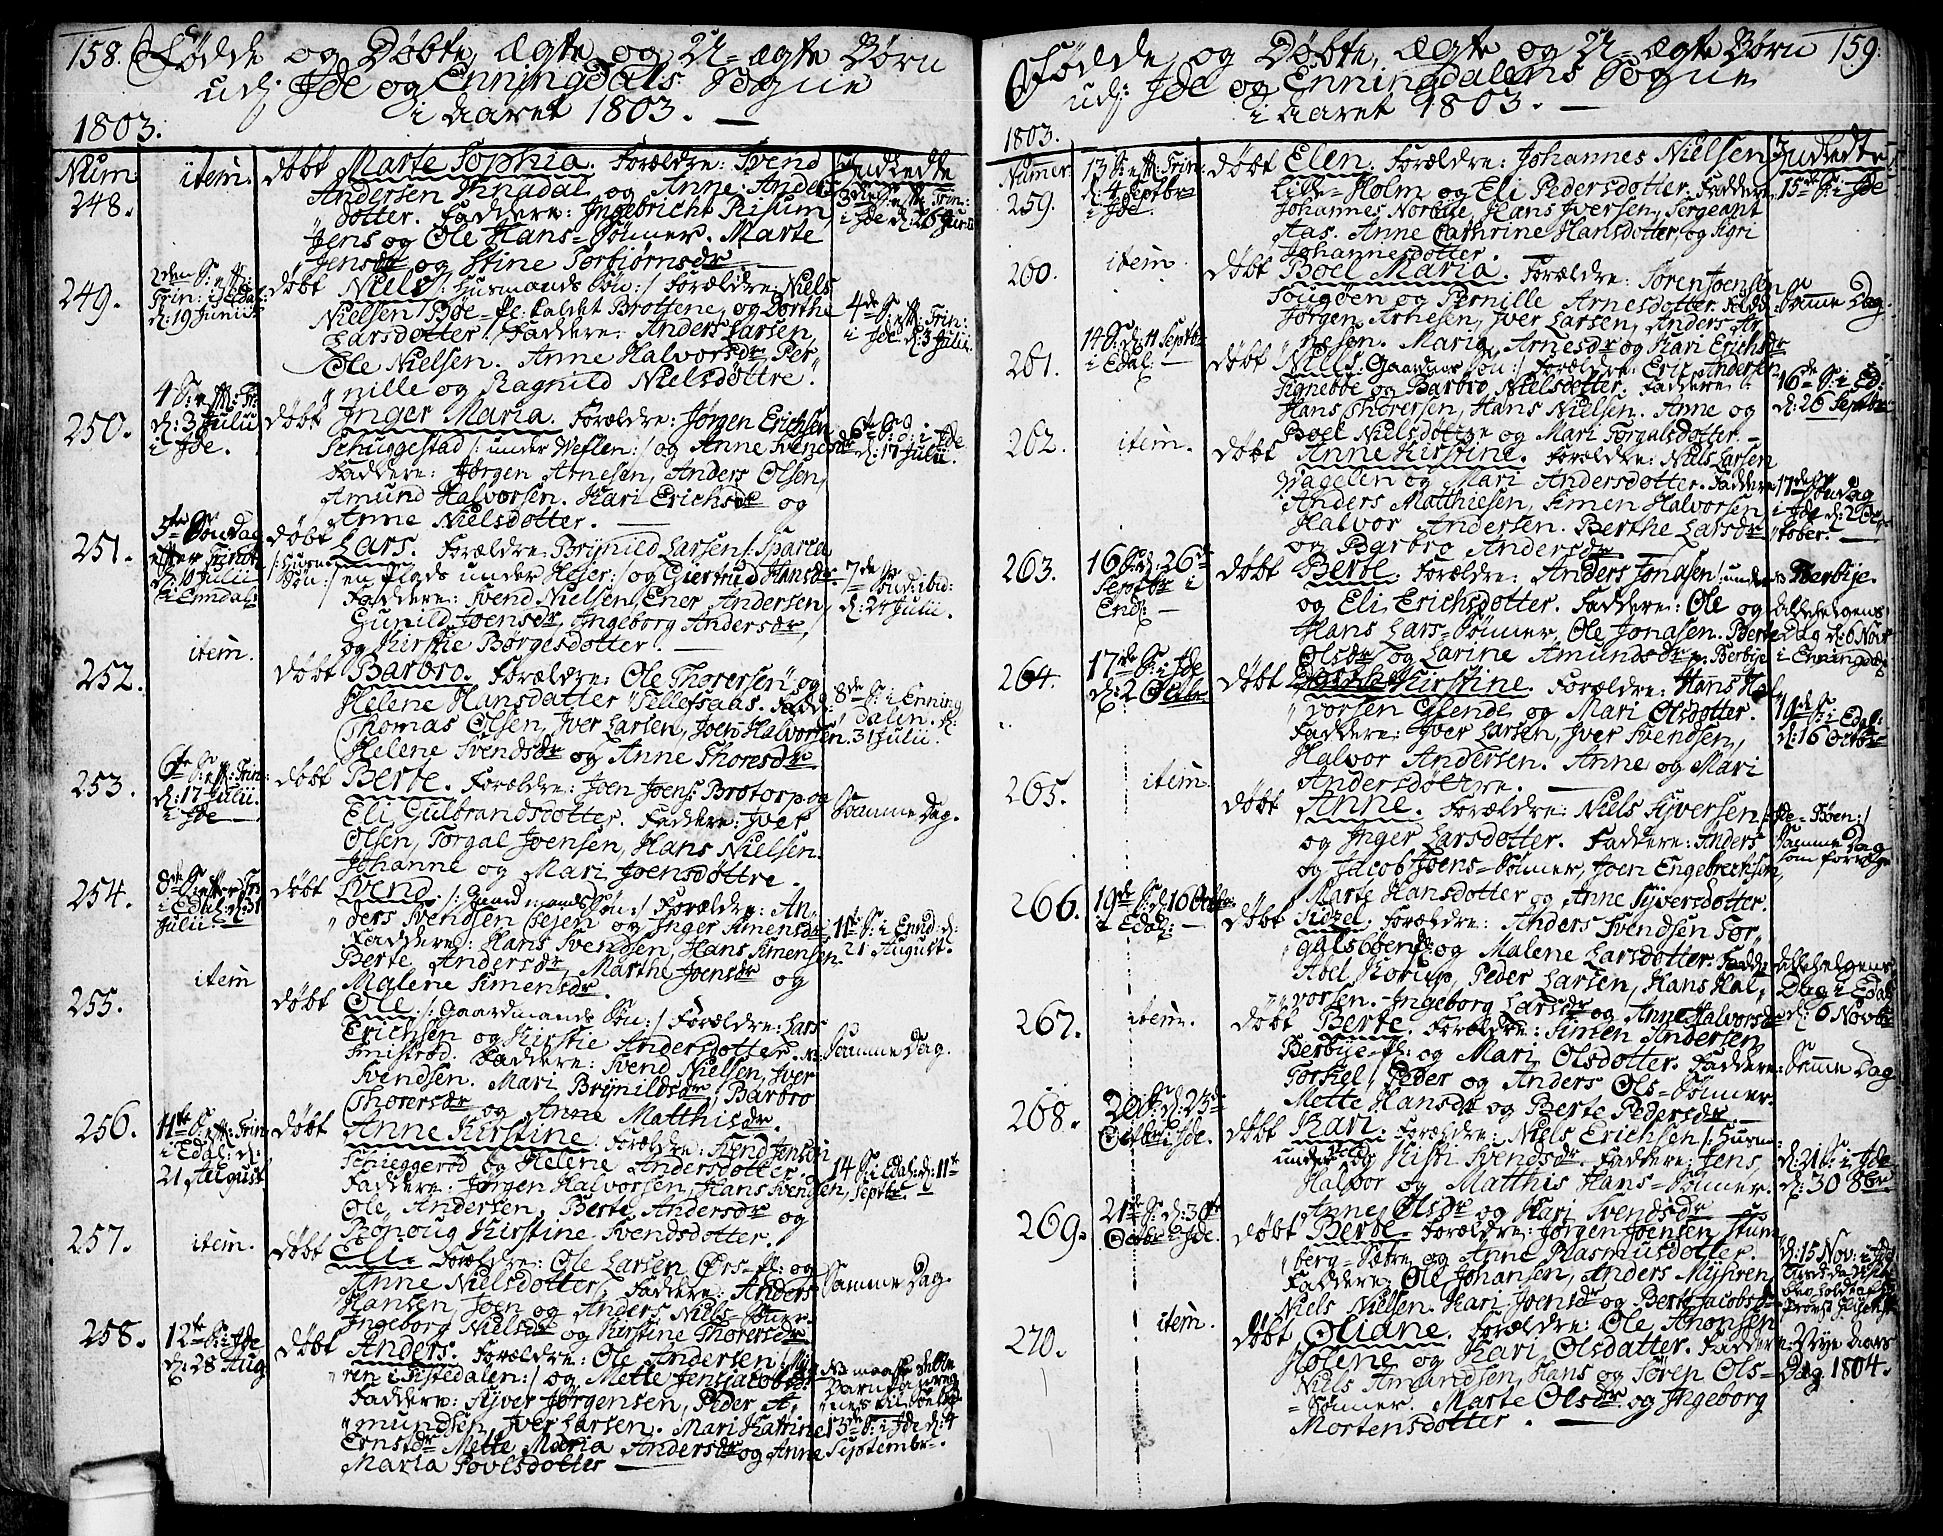 158. Fødde og Døbte, Ægte og U=ægte Børn
udj Ide og Enningdals Sogne
i Aaret 1803. —
1803.
Num
248.
item.
døbt Marte Sophia. Forældre: Svend
Andersen og Anne Anders
dotter. Faddere: Ingebricht Risum,
Jens og Ole Hans=Sønner. Marte
Jensdr og Stine Torbiørnsdr
Indledte
i Ide d: 26 Junii
249.
2den S: eft:
Trin: i Edal:
d: 19 Junii
døbt Niels /: Husmands Søn :/ Forældre: Niels
Nielsen Bøe=pl: kaldet Bråttene, og Dorthe
Larsdotter. Faddere: Anders Larsen,
Ole Nielsen. Anne Halvorsdr, Per„
„nille og Ragnild Nielsdøttre.
4de S: eft: Trin:
i Ide d: 3 Julii.
250.
4 S: eft: Tr:
d: 3 Julii
i Ide.
døbt Inger Maria. Forældre: Jørgen Erichsen
Schuggestad /: under Veflen :/ og Anne Svensdr
Faddere: Jørgen Arnesen, Anders Olsen,
Amund Halvorsen. Kari Erichsdr og
Anne Nielsdotter. —
6te S: i Ide
d: 17 Julii.
251.
5te Søndag
efter Trinit:
d: 10 Julii
i Enndal:
døbt Lars. Forældre: Brÿnild Larsen /: Sparla
/: Husmds
Søn :/ en Plads under Hejer :/ og Giertrud Hansdr
Faddere: Svend Nielsen, Ener Andersen,
Gunild Joensdr, Ingeborg Andersdr,
og Kirstie Børgesdotter. —
7de Sønd: ibid:
d: 24 Julii.
252.
item.
døbt Barbro. Forældre: Ole Thoresen og
Helene Hansdatter Tellefsaas. Fadd:
Thomas Olsen, Iver Larsen, Joen Halvorsen.
Helene Svendsdr og Anne Thoresdr.
8de S: i Enning
dalen. d:
31 Julii.
253.
6te S: eft: Trin:
d: 17 Julii.
i Ide
døbt Berte. Forældre: Joen Joens: Brotorp og
Eli Gulbrandsdotter. Faddere: Iver
Olsen, Torgal Joensen, Hans Nielsen.
Johanne og Mari Joensdøttre.
Samme Dag.
254.
8de S: efter Tr:
i Edal: d: 31
Julii.
døbt Svend. /: Gaardmands Søn :/ Forældre: An„
„ders Svendsen og Inger Simensdr
Faddere: Hans Svendsen, Hans Simensen
Berte Andersdr, Marthe Joensdr og
Malene Simensdr.
11te S: i Ennd: d:
21 August.
255.
item
døbt Ole /: Gaardmands Søn :/ Forældre: Lars
Erichsen og Kirstie Andersdotter
Smistrød. Faddere: Svend Nielsen, Iver
Svendsen. Mari Brÿnildsdr, Barbro
Thorersdr og Anne Matthisdr.
Samme Dag.
256.
11te S: eft: Trin
i Edal: d:
21 August
døbt Anne Kirstine. Forældre: Svend Jensen
Schieggerød og Helene Andersdotter.
Faddere: Jørgen Halvorsen, Hans Svendsen,
Ole Andersen, Berte Andersdr og
Rønoug Kirstine Svendsdotter.
14 S: i Edal: d: 11te
Septbr
257.
item.
døbt Eli. Forældre: Ole Larsen Ørs=pl: og
Anne Nielsdotter. Faddere: Anders
Hansen, Joen og Anders Niels=Søner.
Ingeborg Nielsdr og Kirstine Thorersdr.
Samme Dag.
258.
12te S: i Ide
d: 28 Aug
døbt Anders. Forældre: Ole Andersen /:
ren i Tistedalen :/ og Mette Jens Jacobsdr
Faddere: Siver Jørgensen, Peder A„
„mundsen, Iver Larsen. Mari Katrine
Ernstdr. Mette Maria Andersdr og Anne
Maria Povelsdotter —
13de S: i Ide d: 4
Septembr.
Fødde og Døbte, Ægte og U=ægte Børn 159.
udj Ide og Enningdalens Sogne
i Aaret 1803. —
1803.
Numer
259.
13 S: eft: Trin:
d: 4 Septbr
i Ide.
døbt Elen. Forældre: Johannes Nielsen
Lille=Holm og Eli Pedersdotter. Faddere
Johannes Norbÿe, Hans Iversen, Sergeant
Aas. Anne Cathrine Hansdotter, og Sigri
Johannesdotter.
Indledte
15de S: i Ide
260.
item.
døbt Boel Maria. Forældre: Søren Joensen
Sougøen og Pernille Arnesdotter. Fadd:
Jørgen Arnesen, Iver Larsen, Anders Ar„
„nesen. Maria Arnesdr og Kari Erichsdr
Samme Dag.
261.
14 S: d: 11 Septbr
i Edal: —
døbt Niels. Gaardms Søn: Forældre: Eric Andersen
Tignebøe og Barbro Nielsdotter. Faddere:
Hans Thorersen, Hans Nielsen. Anne og
Boel Nielsdøttre og Mari Torgalsdotter.
16de S: i Ed:
d: 26 Septbr
262.
item.
døbt Anne Kirstine. Forældre: Niels Larsen
Vagelen og Mari Andersdotter. Faddere
Anders Matthiesen, Simen Halvorsen
Halvor Andersen. Berthe Larsdr
og Barbro Andersdr
17de Søndag
i Ide d: 2 Oc„
„tober. —
263.
16 S: d: 26de
Septbr i
End: —
døbt Berte. Forældre: Anders Jonasen /: under Berbÿe.
og Eli Erichsdotter. Faddere: Ole og
Hans Lars=Sønner, Ole Jonasen. Berte
Olsdr og Larine Amundsdr p: Berbÿe
Allehelgens
Dag d: 6 Novbr
i Enningd:
264.
17de S: i Ide
d: 2 Octbr
døbt Kirstine. Forældre: Hans Hal„
„vorsen Glende og Mari Olsdotter.
Faddere: Iver Larsen, Iver Svendsen,
Halvor Andersen. Anne og Mari
Andersdøttre. —
19de S: i Edal:
d: 16 Octbr
265.
item.
døbt Anne. Forældre: Niels Siversen /: Bøen :/
og Inger Larsdotter. Faddere: Anders
og Jacob Joens=Sønner, Joen Engebrechtsen,
Marte Hansdotter og Anne Siversdotter.
Samme Dag
som forrige
266.
19de S: d: 16 Octbr:
i Edal: —
døbt Sidzel. Forældre: Anders Svendsen Tor„
„galsbøen og Malene Larsdotter. Fadde
Abel Korup, Peder Larsen, Hans Hal„
„vorsen. Ingeborg Larsdr og Anne Halvorsdr
Allehelgens
Dag i Edal
d: 6 Novbr
267.
item.
døbt Berte. Forældre: Simen Andersen
Berbÿe=pl: og Mari Olsdotter. Faddere:
Torkel, Peder og Anders Ols=Sønner.
Mette Hansdr og Berte Pedersdr —
Samme Dag
268.
20de S: d: 23de
Octbr i Ide.
døbt Kari. Forældre: Niels Erichsen /: Husm:
under og Kisti Svendsdr. Faddere: Jens,
Halvor og Matthis Hans=Sønner.
Anne Olsdr og Kari Svendsdr
d: 21 S: i Ide
d: 30 8br
269.
21de S: d: 30te
Octbr i Ide.
døbt Berte. Forældre: Jørgen Joensen Stum„
„berg=Sætre og Anne Rasmusdotter.
Faddere: Ole Johansen, Anders Mÿhren,
Niels Nielsen. Kari Joensdr og Berte Jacobsdr
d: 15 Nov: i Ide
270.
item.
døbt Oliane. Forældre: Ole Aronsen
Holene og Kari Olsdatter. Faddere:
Niels Amundsen, Hans og Søren Ols=
=Sønner. Marte Olsdr og Ingeborg
Mortensdotter. —
Nÿe Aars
Dag 1804.